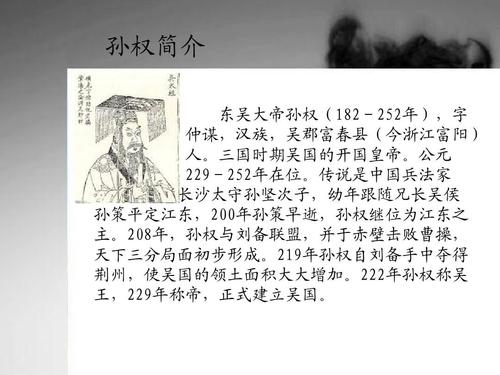 孙权简介
吴大帝
东吴大帝孙权（182－252年），字
仲谋，汉族，吴郡富春县（今浙江富阳）
人。三国时期吴国的开国皇帝。公元
229－252年在位。传说是中国兵法家
长沙太守孙坚次子，幼年跟随兄长吴侯
孙策平定江东，200年孙策早逝，孙权继位为江东之
主。208年，孙权与刘备联盟，并于赤壁击败曹操，
天下三分局面初步形成。219年孙权自刘备手中夺得
荆州，使吴国的领土面积大大增加。222年孙权称吴
王，229年称帝，正式建立吴国。